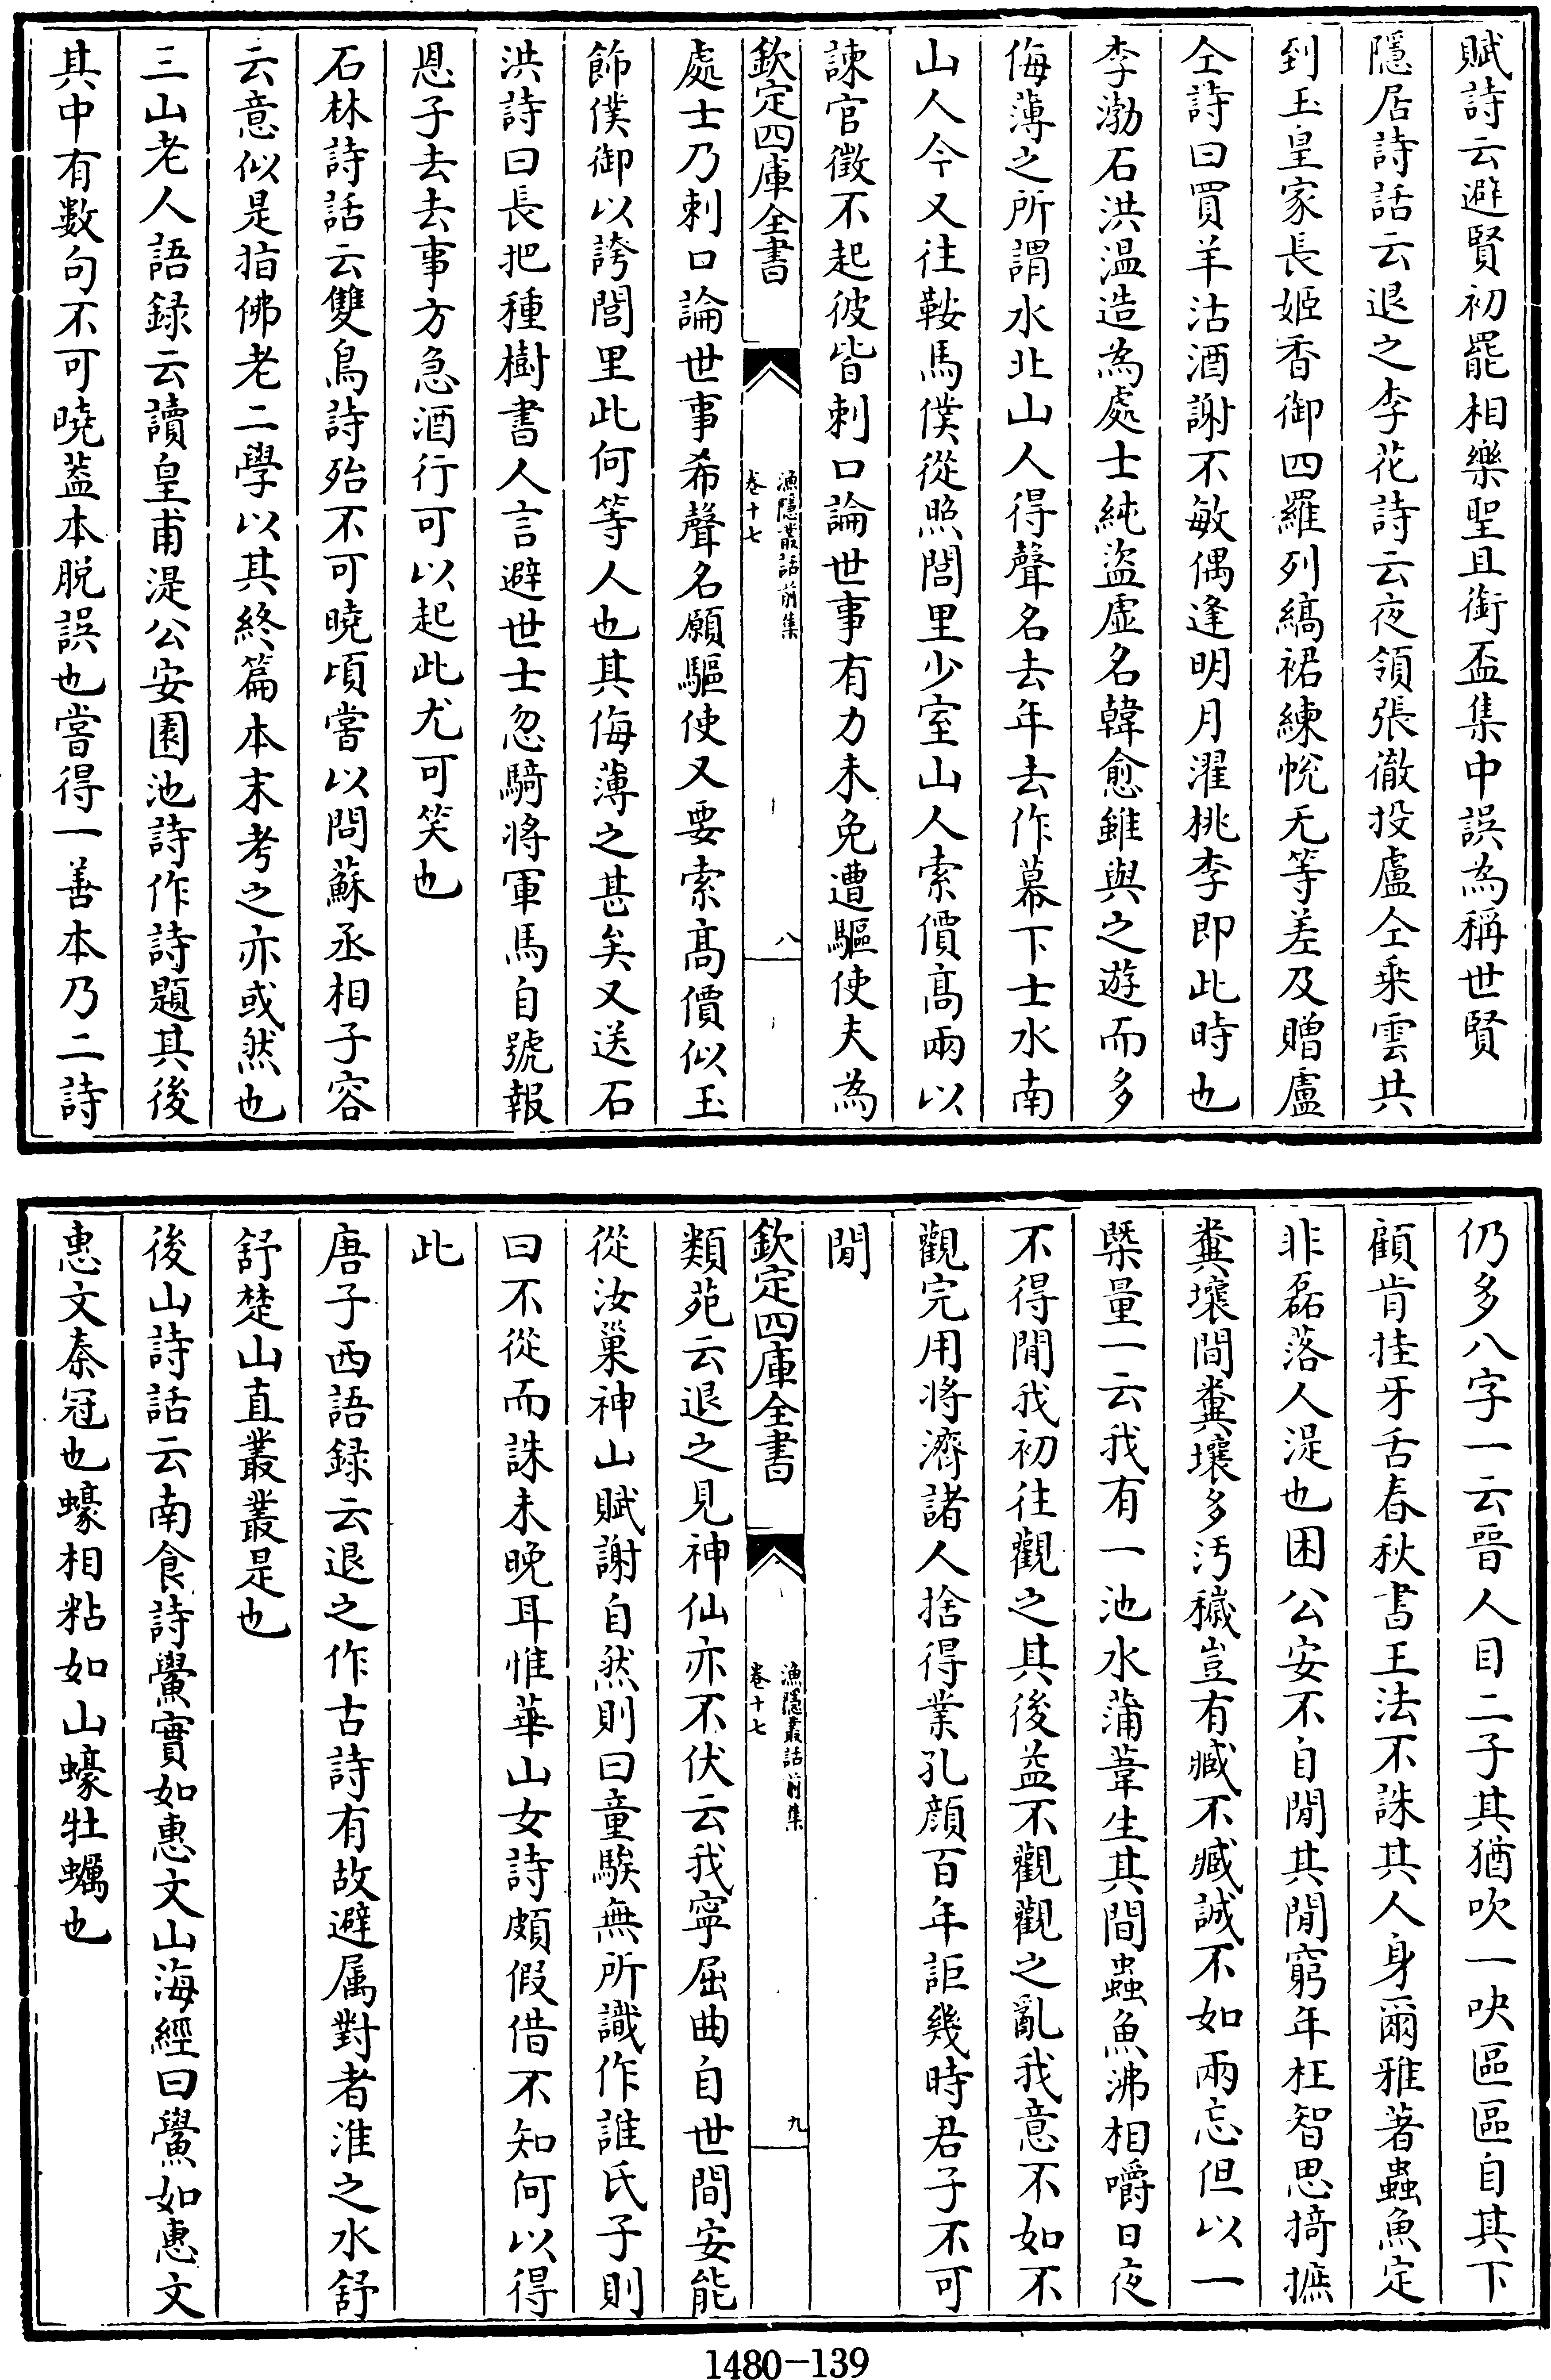 賦詩云避賢初罷相樂聖且銜盃集中誤為稱世賢
隱居詩話云退之李花詩云夜領張徹投盧仝乗雲共
到玉皇家長姬香御四羅列縞裙練帨无等差及贈盧
仝詩曰買羊沽酒謝不敏偶逢明月濯桃李即此時也
李渤石洪温造為處士純盜虛名韓愈雖與之遊而多
侮薄之所謂水北山人得聲名去年去作幕下士水南
山人今又往鞍馬僕從照閭里少室山人索價髙兩以
諫官徵不起彼皆刺口論世事有力未免遭驅使夫為
欽定四庫全書
漁隱叢話前集
卷十七
八
處士乃刺口論世事希聲名願驅使又要索髙價似玉
飾僕御以誇閭里此何等人也其侮薄之甚矣又送石
洪詩曰長把種樹書人言避世士忽騎將軍馬自號報
恩子去去事方急酒行可以起此尤可笑也
石林詩話云雙鳥詩殆不可曉頃嘗以問蘇丞相子容
云意似是指佛老二學以其終篇本末考之亦或然也
三山老人語録云讀皇甫湜公安園池詩作詩題其後
其中有數句不可曉葢本脱誤也嘗得一善本乃二詩
仍多八字一云晉人目二子其猶吹一吷區區自其下
顧肯挂牙舌春秋書王法不誅其人身爾雅著蟲魚定
非磊落人湜也困公安不自閒其閒窮年枉智思掎摭
糞壤間糞壤多汚穢豈有臧不臧誠不如兩忘但以一
槩量一云我有一池水蒲葦生其間蟲魚沸相嚼日夜
不得閒我初往觀之其後益不觀觀之亂我意不如不
觀完用將濟諸人捨得業孔顔百年詎幾時君子不可
閒
欽定四庫全書
漁隱叢話前集
卷十七
九
類苑云退之見神仙亦不伏云我寧屈曲自世間安能
從汝巢神山賦謝自然則曰童騃無所識作誰氏子則
曰不從而誅未晚耳惟華山女詩頗假借不知何以得
此
唐子西語録云退之作古詩有故避属對者淮之水舒
舒楚山直叢叢是也
後山詩話云南食詩鱟實如惠文山海經曰鱟如惠文
惠文秦冠也蠔相粘如山蠔牡蠣也
1480-139